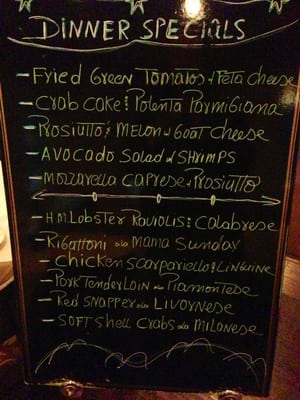 DINNER SPECIALS
- Fried Green Tomatos w/ Feta Cheese
- Crab Cake & Polenta Parmigiana
- Prosiutto & Melon w/ Goat Cheese
- AVOCADO Salad w/ SHRIMPS
- Mozzarella Caprese & Prosiutto
- H.M. Lobster Raviolis & Calabrese
- Rigattoni ala Mama Sunday
- Chicken Scarpariello & Linguine
- Pork Tenderloin ala Piamontese
- Red Snapper ala Livornese
- SOFT Shell Crabs ala Milanese